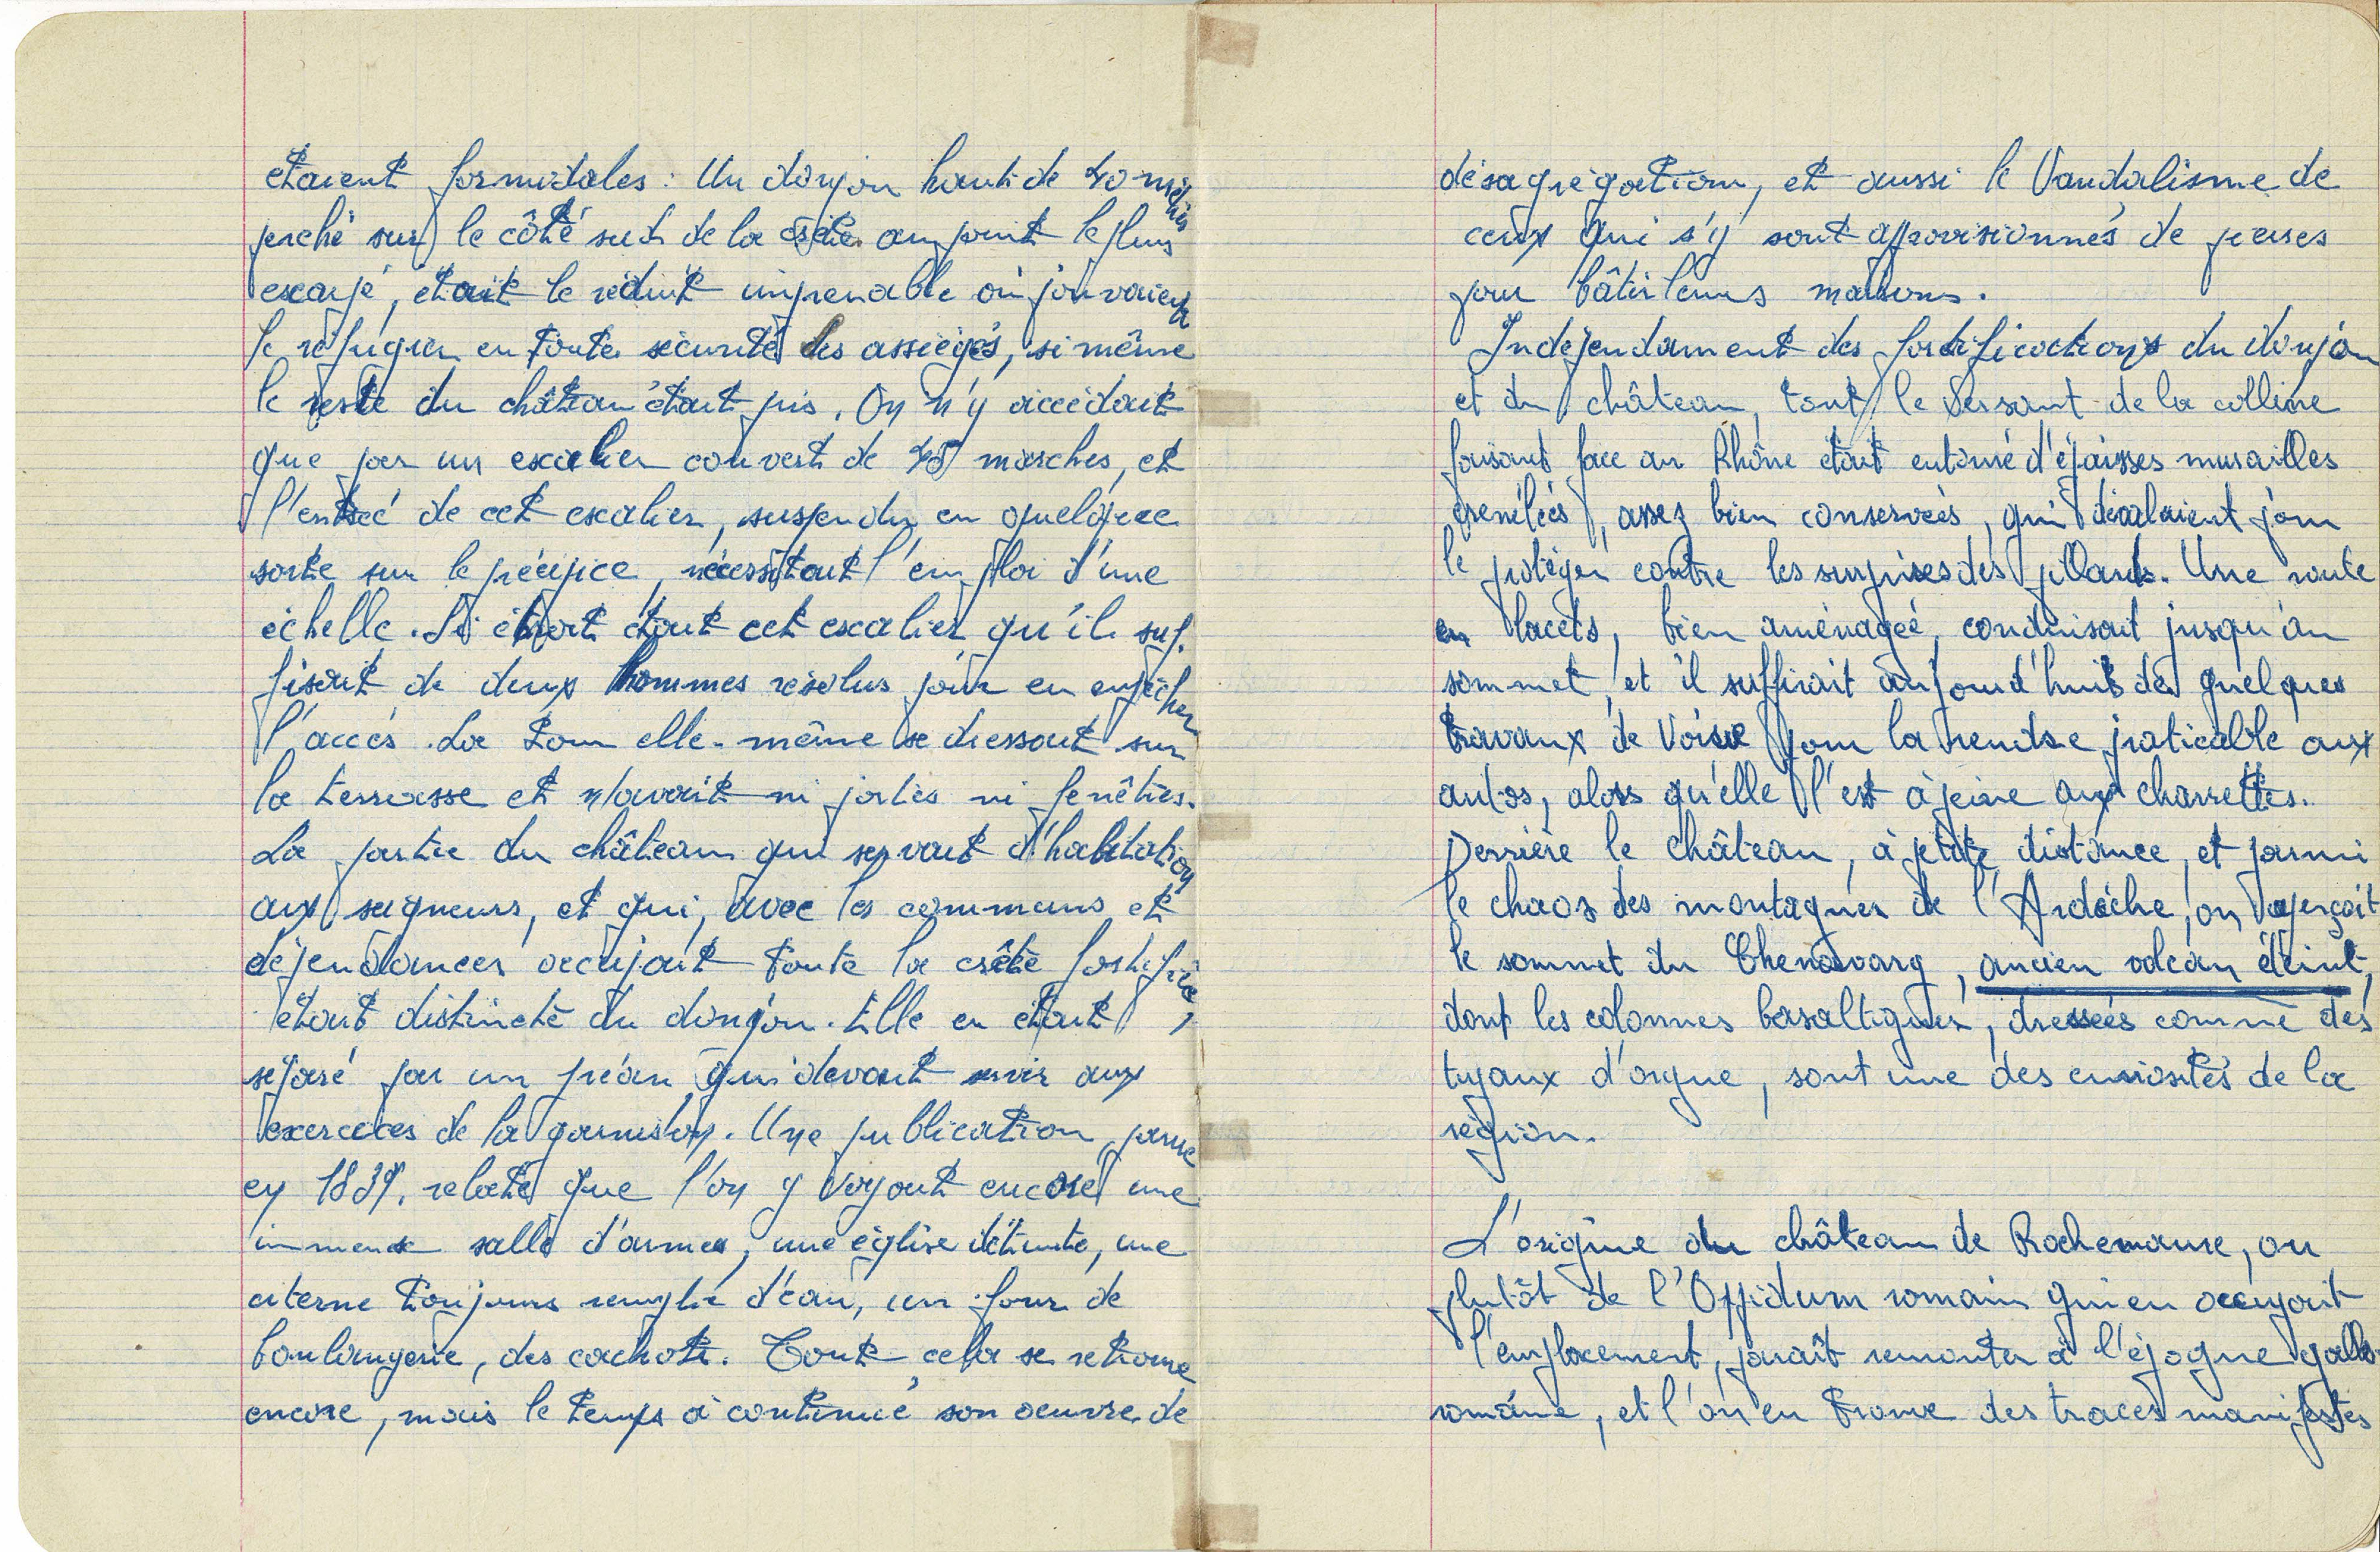 étaient formidales. Un donjon haut de 40 mètres
perché sur le côté sud de la crête au point le plus
escarpé, était le réduit imprenable où pouvaient
se réfugier en toute sécurité les assiégés, si même
le reste du château était pris. On n'y accédait
que par un escalier couvert de 45 marches, et
l'entrée de cet escalier, suspendu en quelque
sorte sur le précipice, nécessitait l'emploi d'une
échelle. Si étroit était cet escalier qu'il suf-
fisait de deux hommes résolus pour en empêcher
l'accès. La tour elle-même se dressait sur
la terrasse et n'avait ni portes ni fenêtres.
La partie du château qui servait d'habitation
aux seigneurs, et qui, avec les communs et
dépendances occupait toute la crête fortifiée,
était distincte du donjon. Elle en était
séparé par un préau qui devait servir aux
exercices de la garnison. Une publication parue
en 1839, relate que l'on y voyait encore une
immense salle d'armes, une église détruite, une
citerne toujours remplie d'eau, un four de
boulangerie, des cachots. Tout cela se retrouve
encore, mais le temps a continué son oeuvre de
désagrégation, et aussi le Vandalisme de
ceux qui s'y sont approvisionnés de pierres
pour bâtir leurs maisons.
Indépendamment des fortifications du donjon
et du château, tout le versant de la colline
faisant face au Rhône était entouré d'épaisses murailles
crénelées, assez bien conservées, qui dévalaient pour
le protéger contre les surprises des pillards. Une route
en lacets, bien aménagée, conduisait jusqu'au
sommet, et il suffirait aujourd'hui de quelques
travaux de Voirie pour la rendre praticable aux
autos, alors qu'elle l'est à peine aux charrettes.
Derrière le château, à petite distance, et parmi
le chaos des montagnes de l'Ardèche, on aperçoit
le sommet du Chenavarq, ancien volcan éteint,
dont les colonnes basaltiques, dressées comme des
tuyaux d'orgue, sont une des curiosités de la
région.
L'origine du château de Rochemaure, ou
plutôt de l'Oppidum romain qui en occupait
l'emplacement, paraît remonter à l'époque gallo-
romaine, et l'on en trouve des traces manifestes